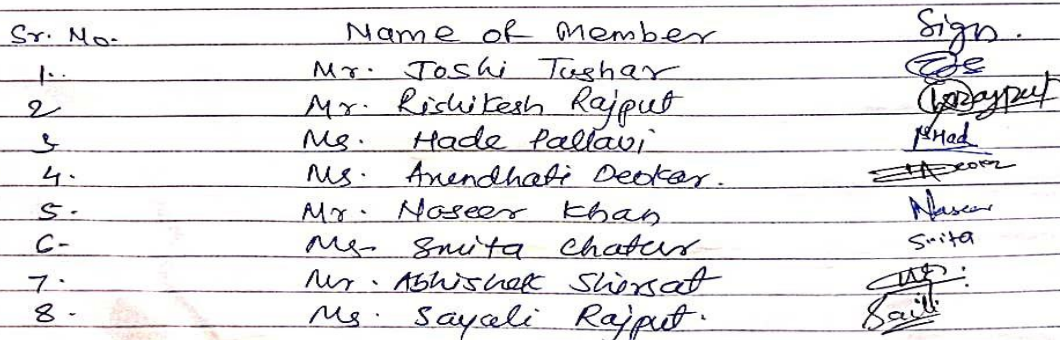 Sr. No. Name of Member Sign.
1. Mr. Joshi Tushar
2 Mr. Rishikesh Rajput Rajput
3 Ms. Hade Pallavi PHad
4. Ms. Arundhati Deokar. Deokar
5. Mr. Naseer Khan Naseer
6- Ms- Smita Chatur Smita
7. Mr. Abhishek Shirsat
8. Ms. Sayali Rajput. Saili